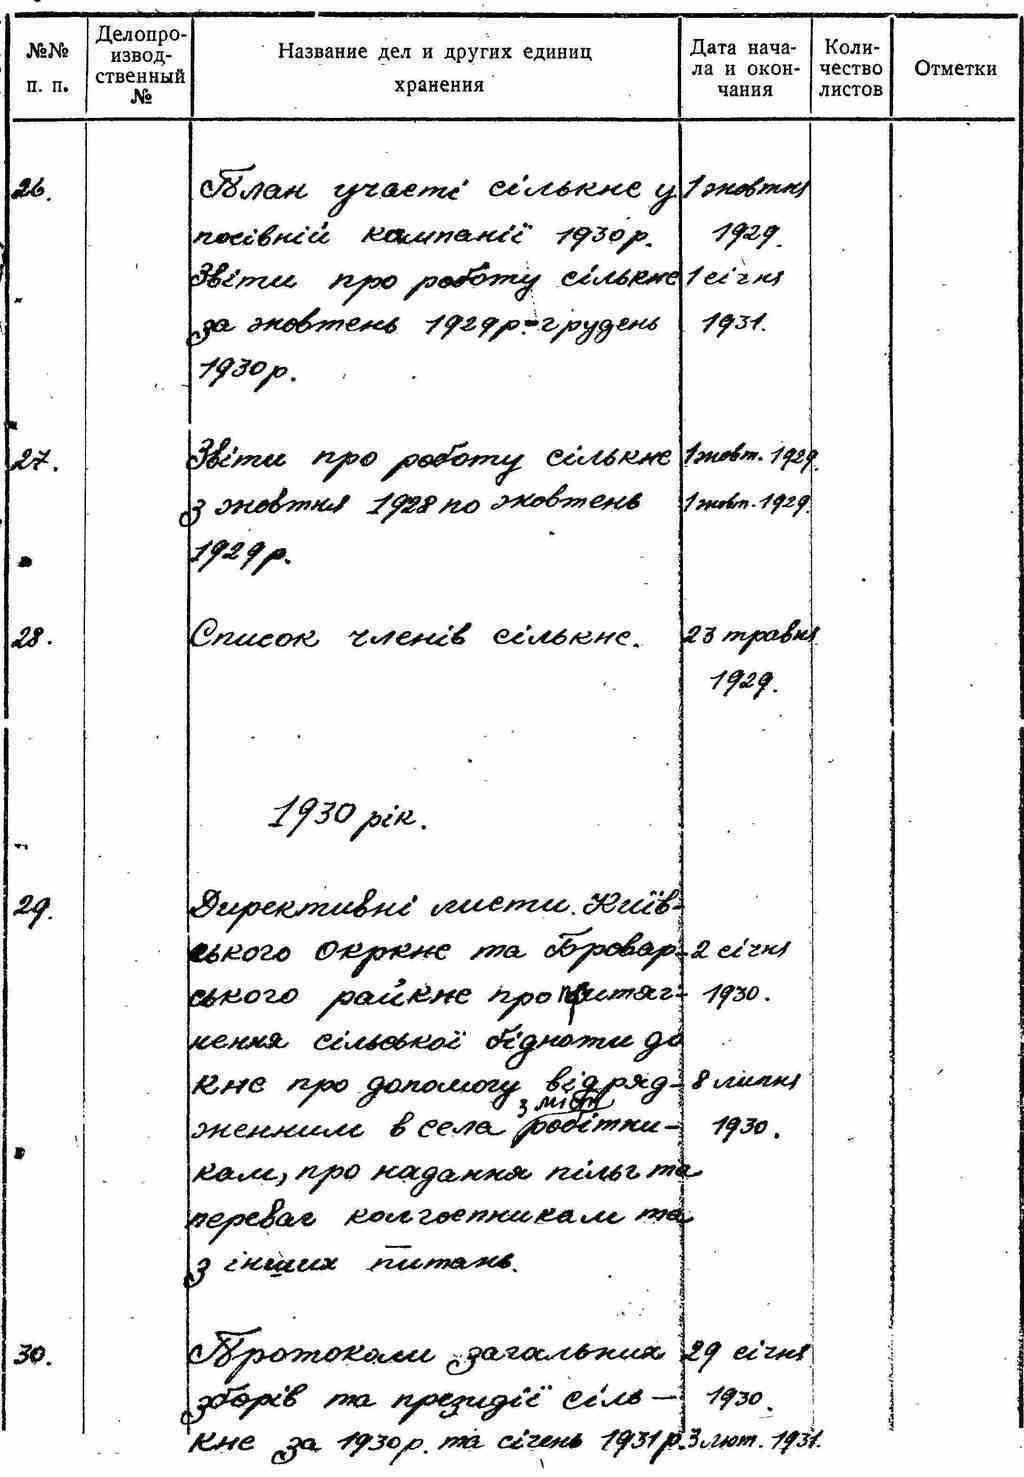 №№ п. п.
Делопро-
извод-
ственный
№
Название дел и других единиц
хранения
Дата нача-
ла и окон-
чания
Коли-
чество
листов
Отметки
26. План участі сількнс у 1 жовтня
посівній кампанії 1930р. 1929.
Звіти про роботу сількнс 1 січня
за жовтень 1929р.-грудень 1931.
1930р.
27. Звіти про роботу сількнс 1 жовт. 1929.
з жовтня 1928 по жовтень 1 жовт. 1929.
1929р.
28. Список членів сількнс. 23 травня
1929.
1930 рік.
29. Директивні листи Київ-
ського Окркнс та Бровар- 2 січня
ського райкнс про притяг- 1930.
нення сільської бідноти до
кнс про допомогу відряд- 8 липня
з міст
женним в села робітни- 1930.
кам, про надання пільг та
переваг колгоспникам та
з інших питань.
30. Протоколи загальних 29 січня
зборів та президії сіль- 1930.
кнс за 1930р. та січень 1931р. 3 лют. 1931.